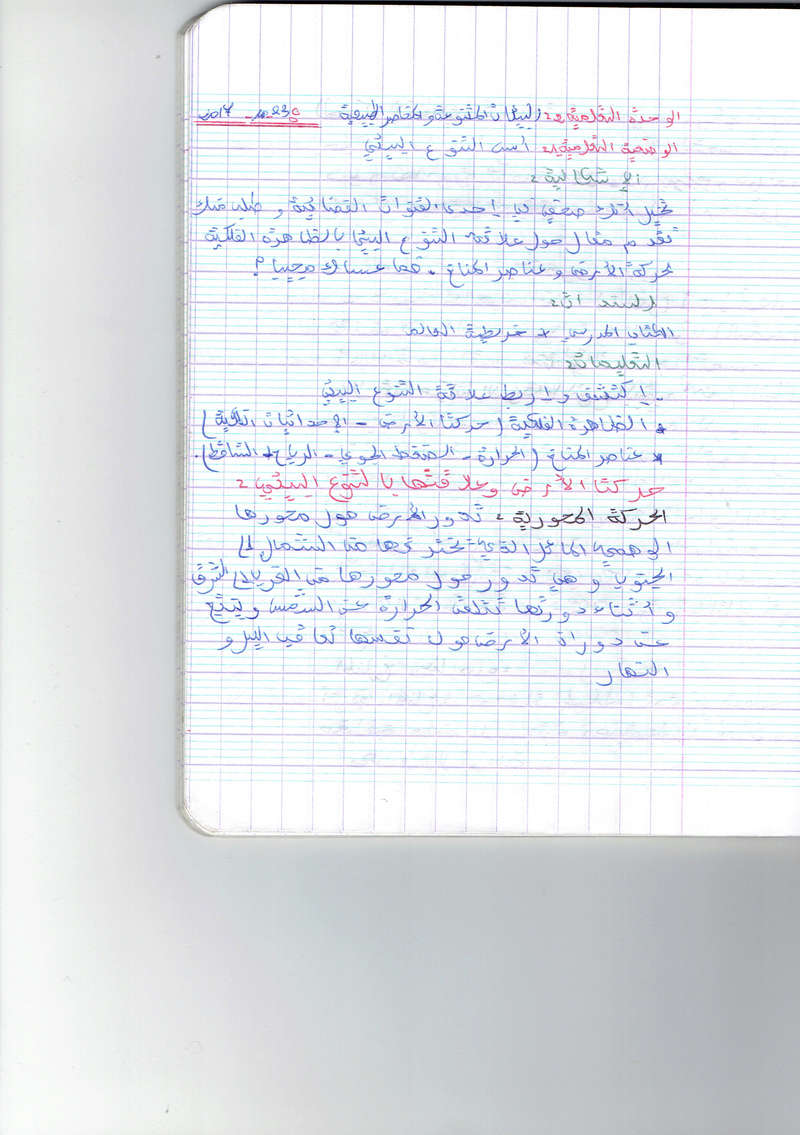 الوحدة التعلمية 2: البيئات المتنوعة والمخاطر الطبيعية
الوضعية التعلمية 1: أسس التنوع البيئي
الإشكالية:
تخيل انك صحفي في إحدى القنوات الفضائية و طلب منك
تقديم مقال حول علاقة التنوع البيئي بالظاهرة الفلكية
لحركة الأرض و عناصر المناخ . فما عساك مجيبا ؟
السندات:
الكتاب المدرسي + خريطة العالم
التعليمات:
- إكتشف و إربط علاقة التنوع البيئي
* الظاهرة الفلكية (حركتا الأرض - الإحداثيات الفلكية)
* عناصر المناخ (الحرارة - الضغط الجوي - الرياح + التساقط).
حركتا الأرض وعلاقتها بالتنوع البيئي :
الحركة المحورية : تدور الأرض حول محورها
الوهمي المائل الذي يخترقها من الشمال إلى
الجنوب و هي تدور حول محورها من الغرب إلى الشرق
و أثناء دورتها تتلقى الحرارة من الشمس و ينتج
عن دوران الأرض حول نفسها تعاقب الليل و
النهار